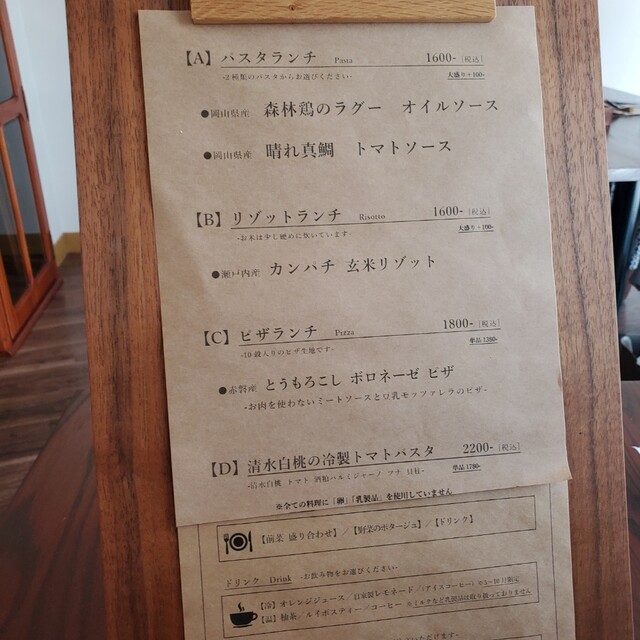 【A】パスタランチ Pasta 1600- [税込]
-2種類のパスタからお選びください- 大盛り+100-
●岡山県産 森林鶏のラグー オイルソース
●岡山県産 晴れ真鯛 トマトソース
【B】リゾットランチ Risotto 1600- [税込]
-お米は少し硬めに炊いています- 大盛り+100-
●瀬戸内産 カンパチ 玄米リゾット
【C】ピザランチ Pizza 1800- [税込]
-10穀入りのピザ生地です- 単品1380-
●赤磐産 とうもろこし ボロネーゼ ピザ
-お肉を使わないミートソースと豆乳モッツァレラのピザ-
【D】清水白桃の冷製トマトパスタ 2200- [税込]
-清水白桃 トマト 酒粕パルミジャーノ アナゴ 貝柱- 単品1780-
※全ての料理に「卵」「乳製品」を使用していません
【前菜 盛り合わせ】/【野菜のポタージュ】/【ドリンク】
ドリンク Drink -お飲み物をお選びください-
【冷】オレンジジュース 自家製レモネード/(アイスコーヒー) ※5~10月限定
【温】柚茶/ルイボスティー/コーヒー ※ミルクなど乳製品は取り扱っておりません